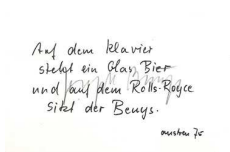 Auf dem Klavier
steht ein Glas Bier
und auf dem Rolls-Royce
sitzt der Beuys.